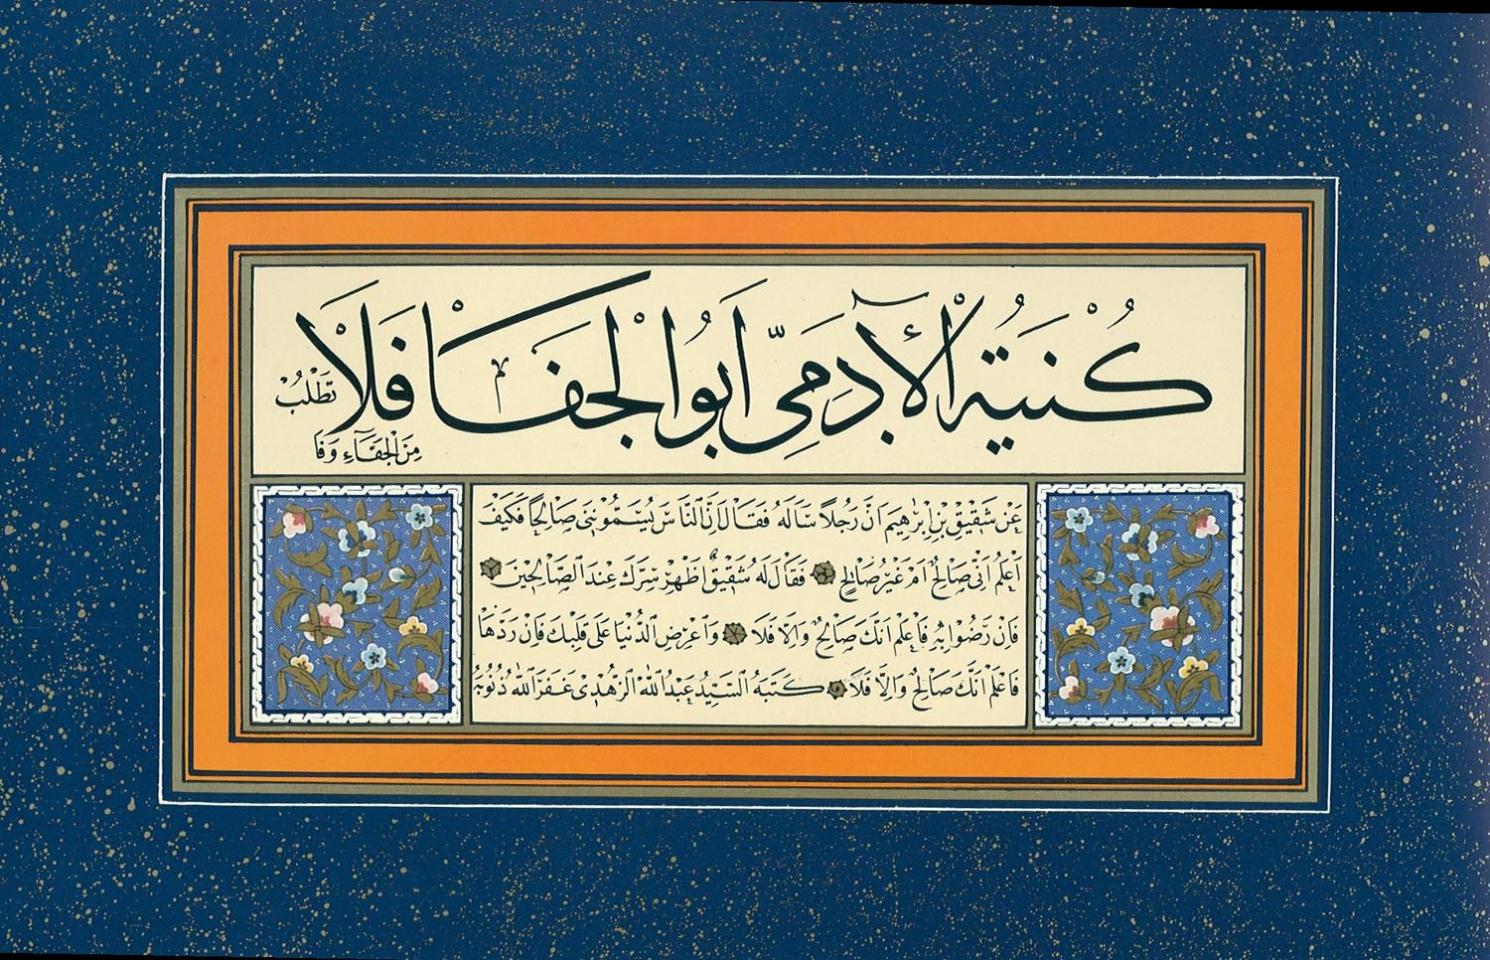 كُنْيَةُ الْأٰدَمِىِّ اَبُوا الْجَفَا فَلَا تَطْلُبْ
مِنَ الْجَفَّآءِ وَفَا
عَنْ شَقِيقِ بْنِ اِبْرٰهِيمَ اَنَّ رَجُلًا سَاَلَهُ فَقَالَ اِنَّ النَّاسَ يُسَمُّونِنِى صَالِحًا فَكَيْفَ
اَعْلَمُ اَنِّى صَالِحٌ اَمْ غَيْرُ صَالِحٍ فَقَالَ لَهُ شَقِيقٌ اَظْهِرْ سِرَّكَ عِنْدَ الصَّالِحِينَ
فَاِنْ رَضُوا بِهِ فَاعْلَمْ اَنَّكَ صَالِحٌ وَاِلَّا فَلَا وَاعْرِضِ الدُّنْيَا عَلَى قَلْبِكَ فَاِنْ رَدَّهَا
فَاعْلَمْ اَنَّكَ صَالِحٌ وَاِلَّا فَلَا كَتَبَهُ السَّيِّدُ عَبْدُ اللّٰهِ الزُّهْدِى غَفَرَ اللّٰهُ ذُنُوبَهُ